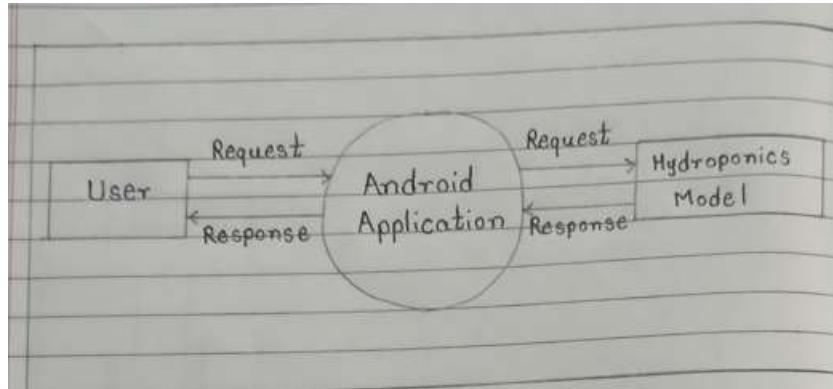 User
Request
Response
Android
Application
Request
Response
Hydroponics
Model